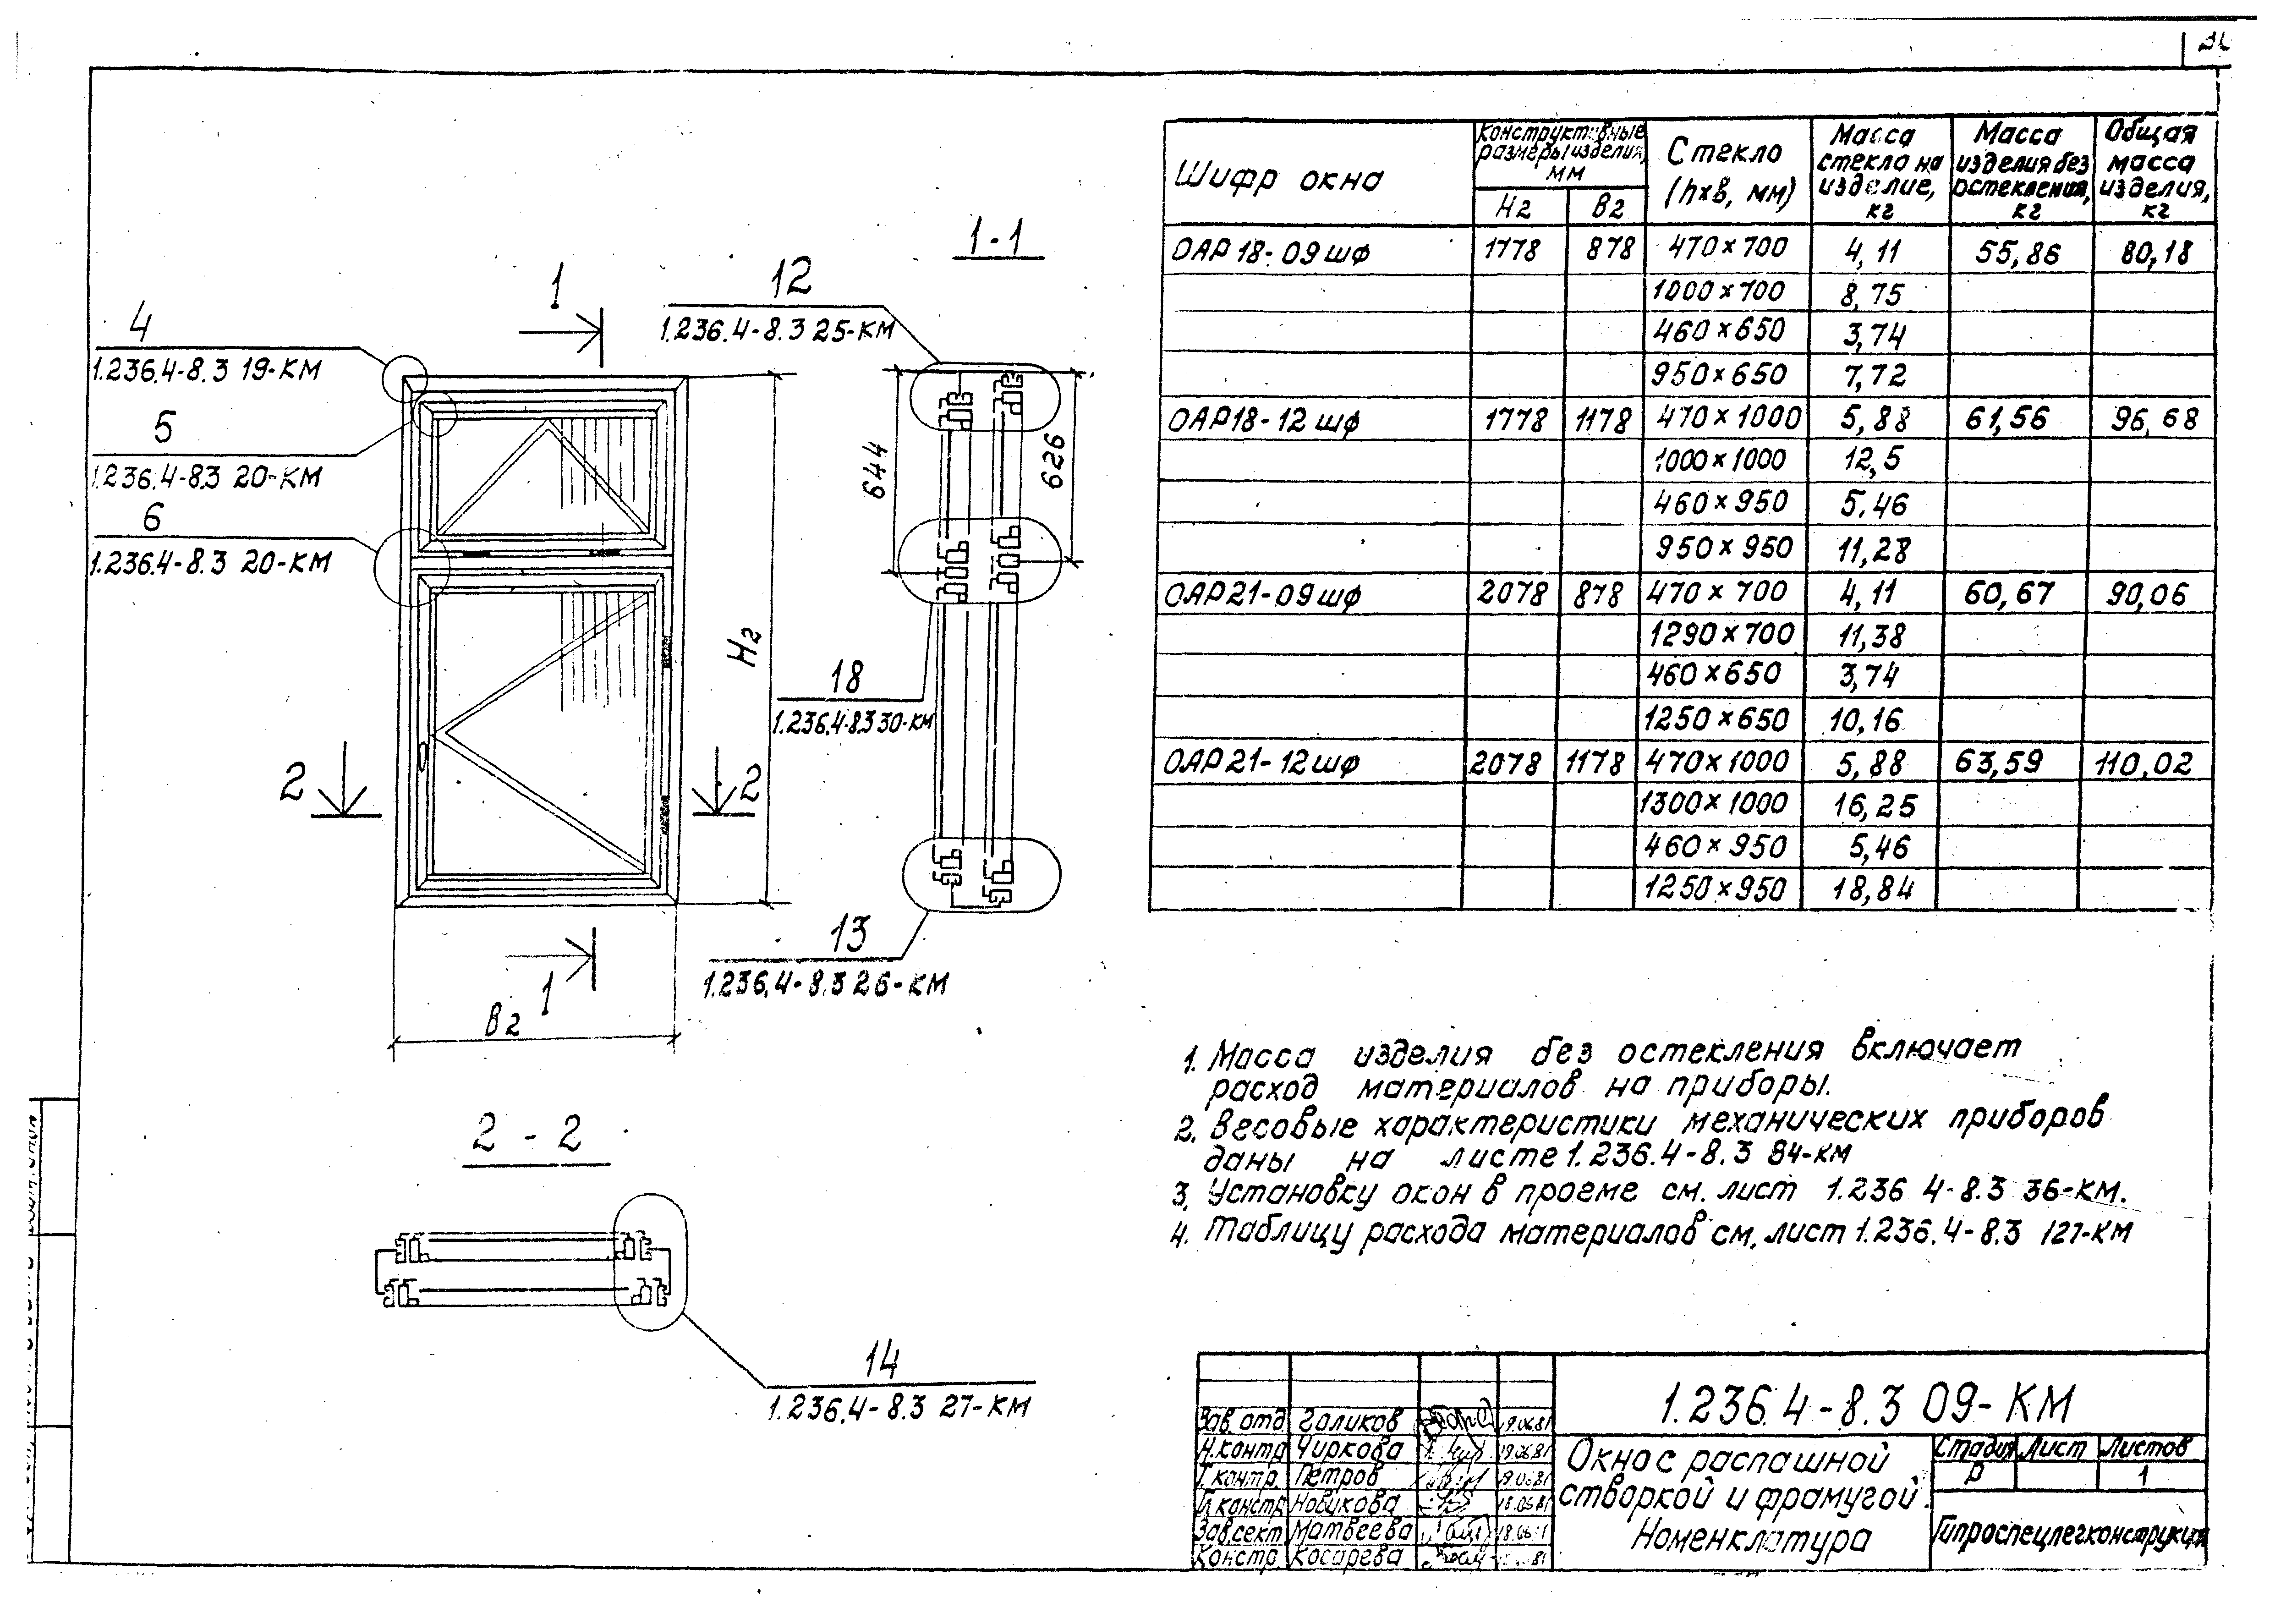 4
1.236.4-8.3 19-КМ
5
1.236.4-8.3 20-КМ
6
1.236.4-8.3 20-КМ
1
1
2
2
H2
B2
1-1
12
1.236.4-8.3 25-КМ
644
626
18
1.236.4-8.3 30-КМ
13
1.236.4-8.3 26-КМ
2-2
14
1.236.4-8.3 27-КМ
Шифр окна | Конструктивные размеры изделия, мм | Стекло (h×в, мм) | Масса стекла на изделие, кг | Масса изделия без остекления, кг | Общая масса изделия, кг
H2 | B2
ОАР 18-09 шф | 1778 | 878 | 470×700 | 4,11 | 55,86 | 80,18
1000×700 | 8,75
460×650 | 3,74
950×650 | 7,72
ОАР18-12 шф | 1778 | 1178 | 470×1000 | 5,88 | 61,56 | 96,68
1000×1000 | 12,5
460×950 | 5,46
950×950 | 11,28
ОАР21-09 шф | 2078 | 878 | 470×700 | 4,11 | 60,67 | 90,06
1290×700 | 11,38
460×650 | 3,74
1250×650 | 10,16
ОАР21-12 шф | 2078 | 1178 | 470×1000 | 5,88 | 63,59 | 110,02
1300×1000 | 16,25
460×950 | 5,46
1250×950 | 18,84
1. Масса изделия без остекления включает
расход материалов на приборы.
2. Весовые характеристики механических приборов
даны на листе 1.236.4-8.3 84-КМ
3. Установку окон в проеме см. лист 1.236 4-8.3 36-КМ.
4. Таблицу расхода материалов см. лист 1.236.4-8.3 127-КМ
1.236.4-8.3 09-КМ
Зав. отд Голиков 19.06.81
Н.контр Чиркова 19.06.81
Т.контр. Петров 19.06.81
Гл.констр Новикова 18.06.81
Зав.сект Матвеева 18.06
Констр Косарева 81
Окно с распашной
створкой и фрамугой.
Номенклатура
Стадия Лист Листов
Р 1
Гипроспецлегконструкция